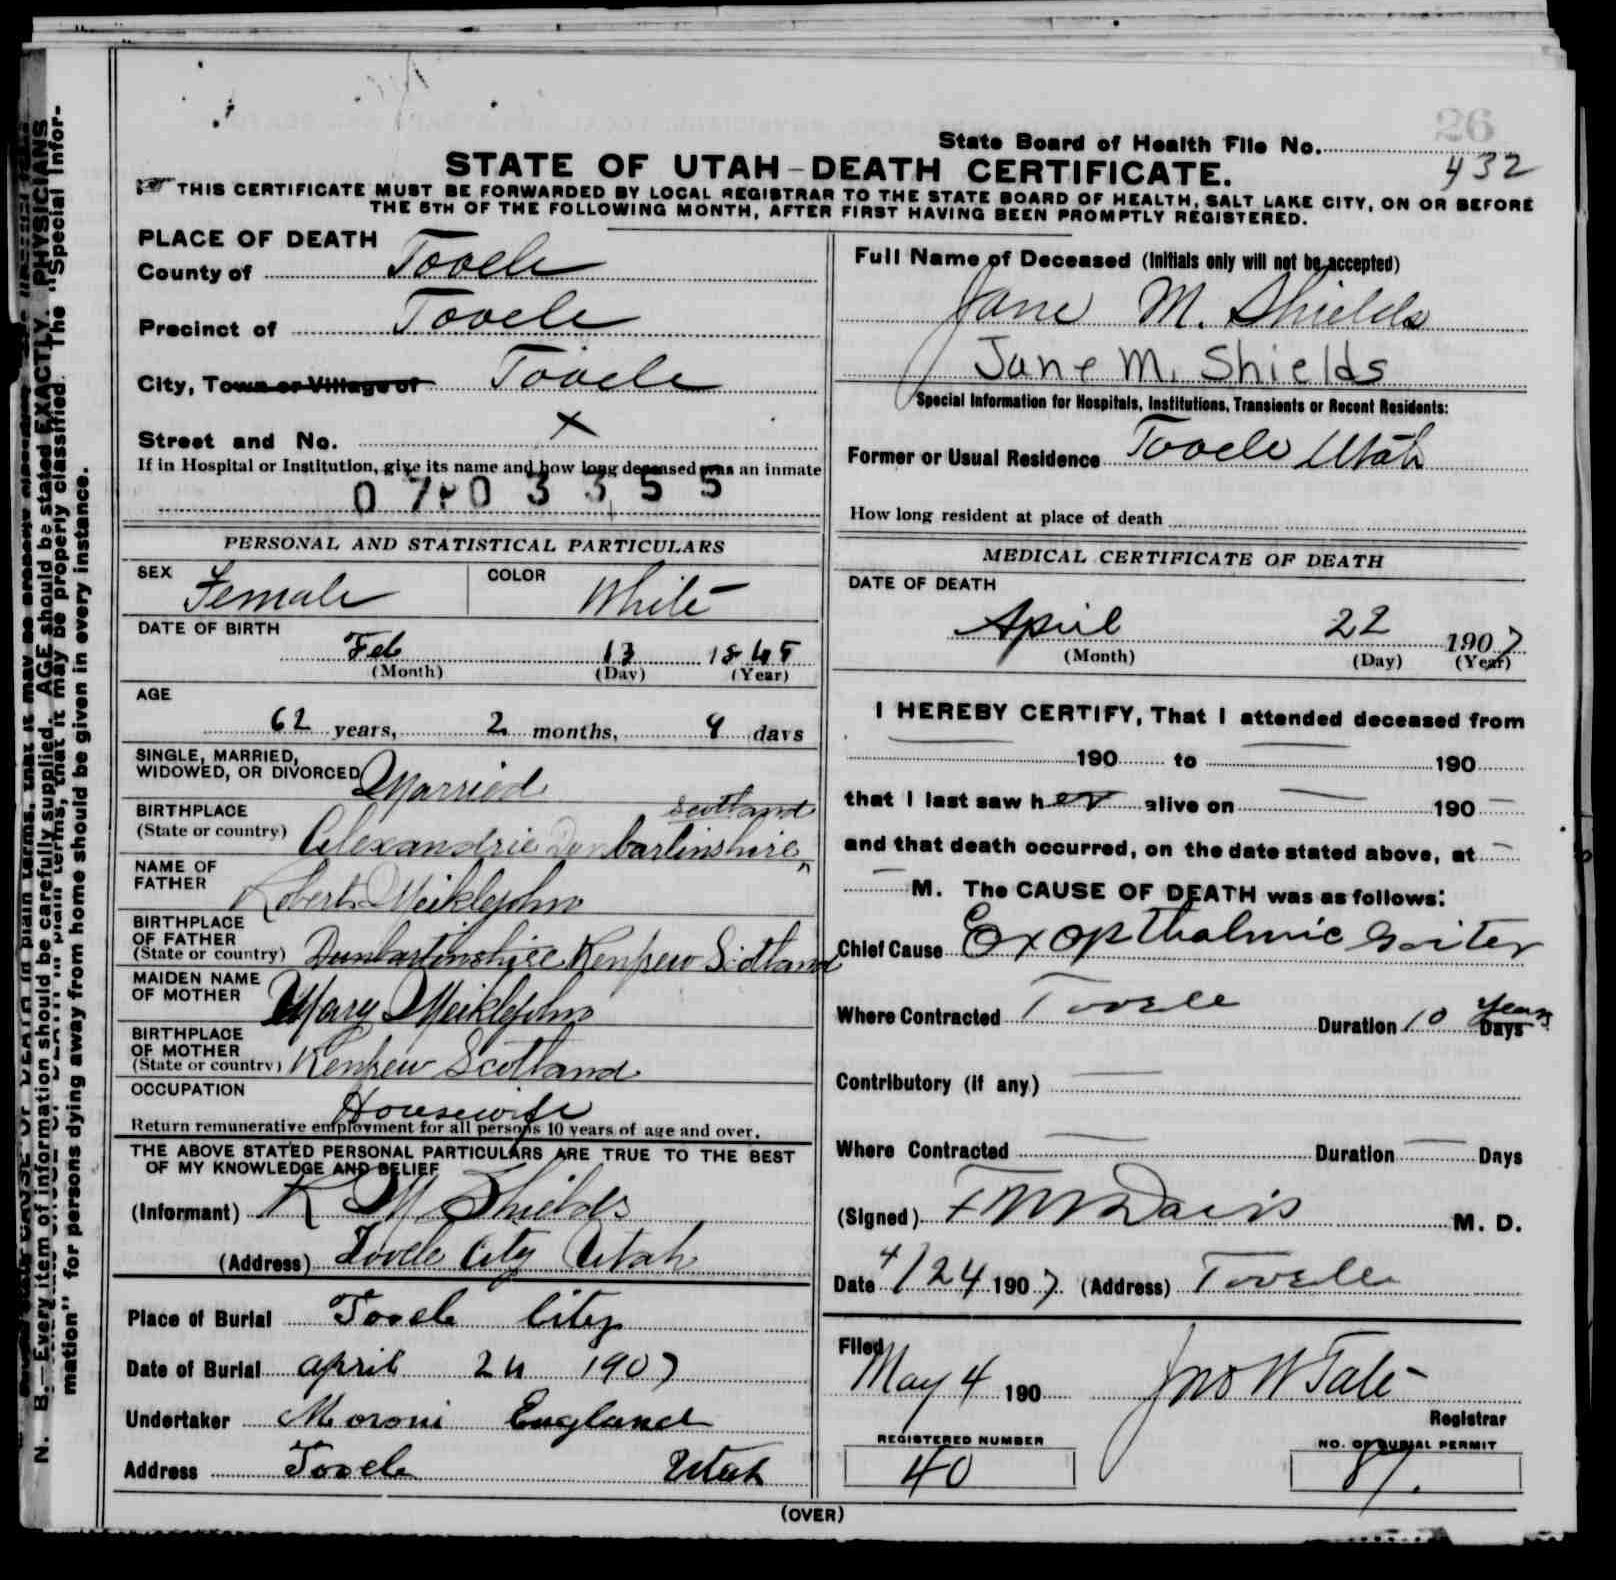 26
State Board of Health File No. 432
STATE OF UTAH - DEATH CERTIFICATE.
THIS CERTIFICATE MUST BE FORWARDED BY LOCAL REGISTRAR TO THE STATE BOARD OF HEALTH, SALT LAKE CITY, ON OR BEFORE
THE 5TH OF THE FOLLOWING MONTH, AFTER FIRST HAVING BEEN PROMPTLY REGISTERED.
PLACE OF DEATH
County of Tooele
Precinct of Tooele
City, Town or Village of Tooele
Street and No. X
If in Hospital or Institution, give its name and how long deceased was an inmate
07-03355
PERSONAL AND STATISTICAL PARTICULARS
SEX Female COLOR White
DATE OF BIRTH
Feb 13 1845
(Month) (Day) (Year)
AGE
62 years, 2 months, 9 days
SINGLE, MARRIED,
WIDOWED, OR DIVORCED Married
BIRTHPLACE Scotland
(State or country) Alexandrie Dunbartinshire
NAME OF
FATHER Robert Meiklejohn
BIRTHPLACE
OF FATHER
(State or country) Dunbartinshire Renfrew Scotland
MAIDEN NAME
OF MOTHER Mary Meiklejohn
BIRTHPLACE
OF MOTHER
(State or country) Renfrew Scotland
OCCUPATION
Housewife
Return remunerative employment for all persons 10 years of age and over.
THE ABOVE STATED PERSONAL PARTICULARS ARE TRUE TO THE BEST
OF MY KNOWLEDGE AND BELIEF
(Informant) R M Shields
(Address) Tooele City Utah
Place of Burial Tooele City
Date of Burial april 24 1907
Undertaker Moroni England
Address Tooele Utah
Full Name of Deceased (Initials only will not be accepted)
Jane M. Shields
Jane M. Shields
Special Information for Hospitals, Institutions, Transients or Recent Residents:
Former or Usual Residence Tooele Utah
How long resident at place of death
MEDICAL CERTIFICATE OF DEATH
DATE OF DEATH
April 22 1907
(Month) (Day) (Year)
I HEREBY CERTIFY, That I attended deceased from
190 to 190
that I last saw her alive on 190
and that death occurred, on the date stated above, at
M. The CAUSE OF DEATH was as follows:
Chief Cause Exopthalmic Goiter
Where Contracted Tooele Duration 10 Years Days
Contributory (if any)
Where Contracted Duration Days
(Signed) F M Davis M. D.
Date 4/24 1907 (Address) Tooele
Filed
May 4 190 Jno W Tate
Registrar
REGISTERED NUMBER
40
NO. OF BURIAL PERMIT
87.
(OVER)
N. B.—Every item of information should be carefully supplied. AGE should be stated EXACTLY. PHYSICIANS
should state CAUSE OF DEATH in plain terms, that it may be properly classified. The "Special Infor-
mation" for persons dying away from home should be given in every instance.